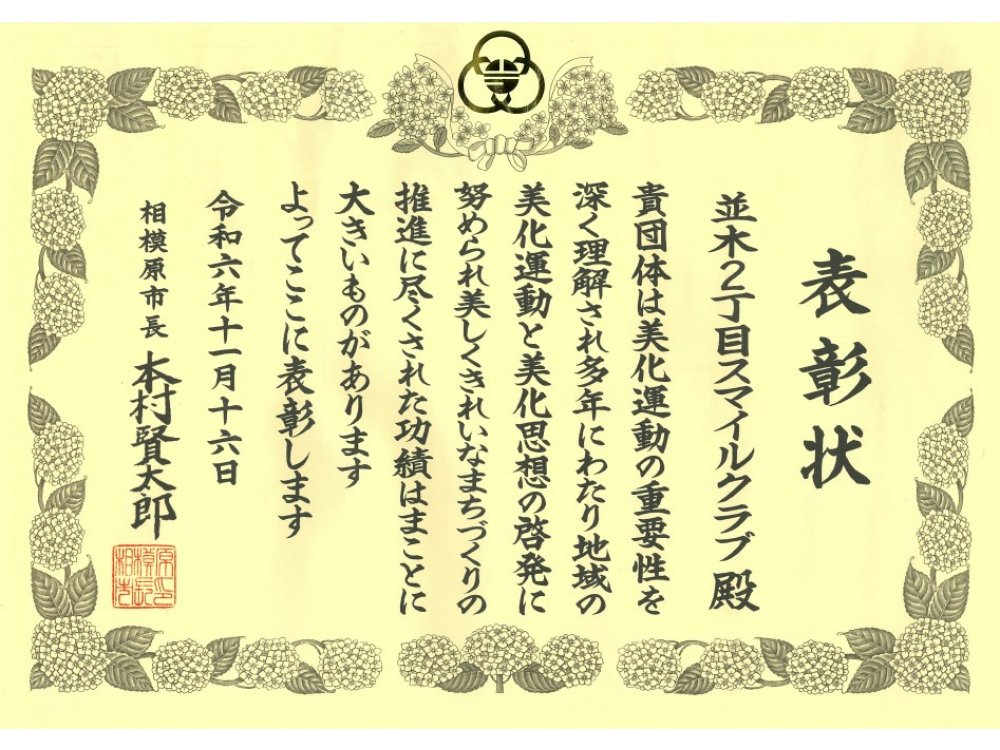 表彰状
並木2丁目スマイルクラブ殿
貴団体は美化運動の重要性を
深く理解され多年にわたり地域の
美化運動と美化思想の啓発に
努められ美しくきれいなまちづくりの
推進に尽くされた功績はまことに
大きいものがあります
よってここに表彰します
令和六年十一月十六日
相模原市長 本村賢太郎